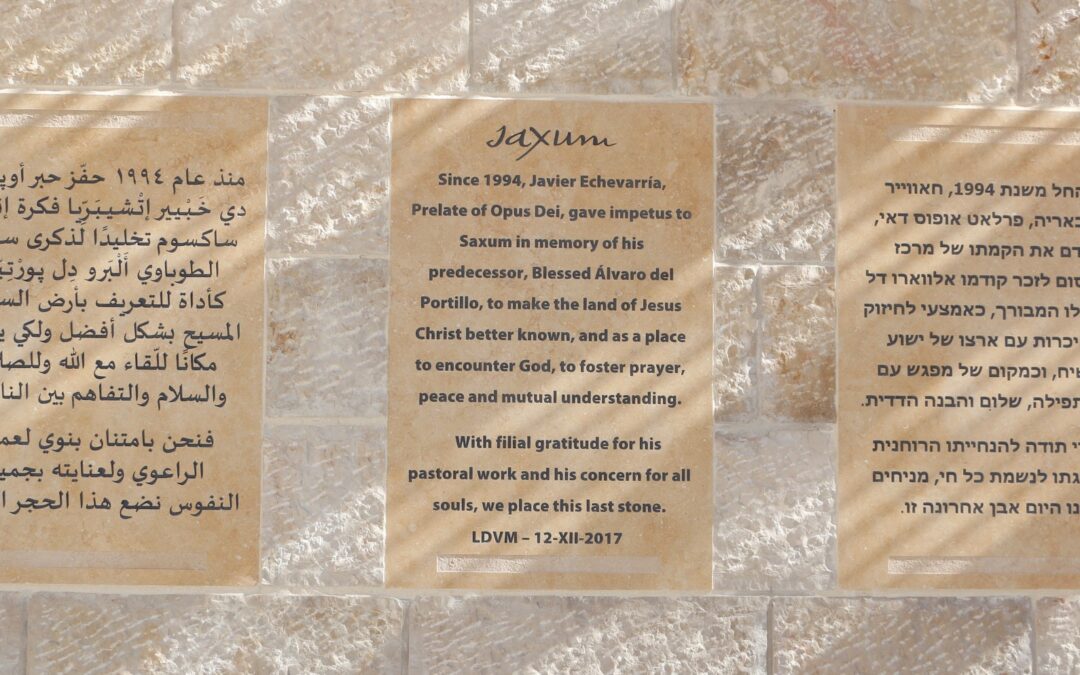 منذ عام ١٩٩٤ حفّز حبر
دي خَبْيير إتْشيبَرِّيا فكرة
ساكسوم تخليدًا لذكرى
الطوباوي أَلْبَرو دِل
كأداة للتعريف بأرض
المسيح بشكل أفضل ولكي
مكانًا للّقاء مع الله
والسلام والتفاهم بين
فنحن بامتنان بنوي
الراعوي ولعنايته
النفوس نضع هذا الحجر
saxum
Since 1994, Javier Echevarría,
Prelate of Opus Dei, gave impetus to
Saxum in memory of his
predecessor, Blessed Álvaro del
Portillo, to make the land of Jesus
Christ better known, and as a place
to encounter God, to foster prayer,
peace and mutual understanding.
With filial gratitude for his
pastoral work and his concern for all
souls, we place this last stone.
LDVM – 12-XII-2017
החל משנת 1994, חאווייר
פרלאט אופוס דאי,
את הקמתו של מרכז
לזכר קודמו אלווארו דל
המבורך, כאמצעי לחיזוק
עם ארצו של ישוע
וכמקום של מפגש עם
תפילה, שלום והבנה הדדית.
תודה להנחייתו הרוחנית
לנשמת כל חי, מניחים
היום אבן אחרונה זו.